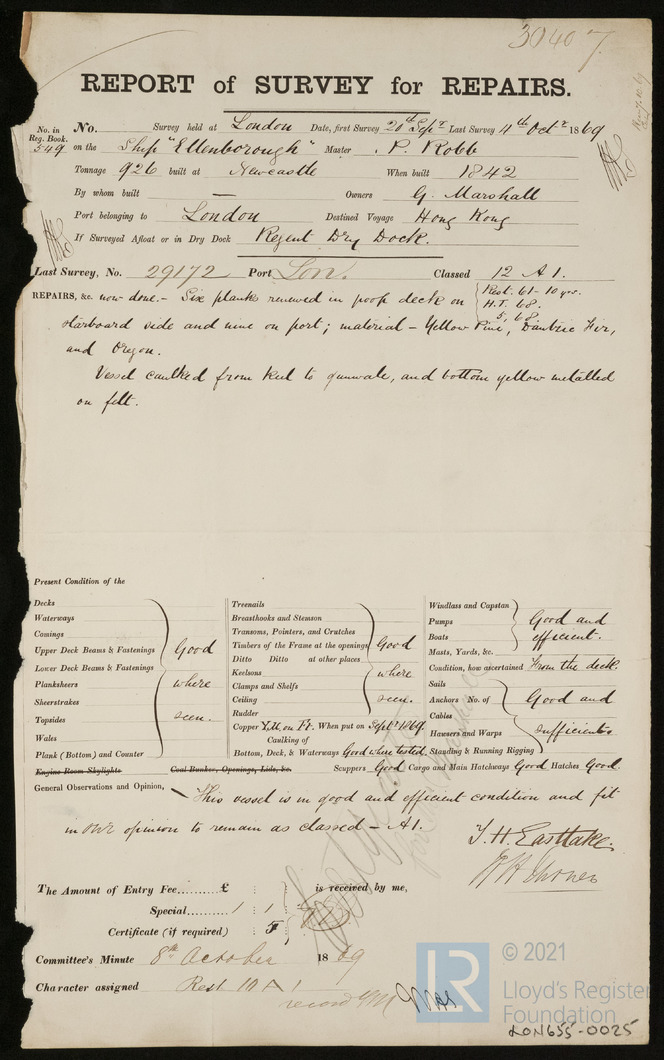 30407
REPORT of SURVEY for REPAIRS.
No. in Reg. Book. 549
No. Survey held at London Date, first Survey 20th Septr Last Survey 4th Octr 1869
on the Ship "Ellenborough" Master P. Robb
Tonnage 926 built at Newcastle When built 1842
By whom built — Owners G. Marshall
Port belonging to London Destined Voyage Hong Kong
If Surveyed Afloat or in Dry Dock Regent Dry Dock.
Last Survey, No. 29172 Port Lon. Classed 12 A 1.
Rest. 61 - 10 yrs.
H.T. 68.
5, 68.
REPAIRS, &c. now done. - Six planks renewed in poop deck on
starboard side and nine on port; material - Yellow Pine, Dantzic Fir,
and Oregon.
Vessel caulked from keel to gunwale, and bottom yellow metalled
on felt.
Present Condition of the
Decks
Waterways
Comings
Upper Deck Beams & Fastenings
Lower Deck Beams & Fastenings
Planksheers
Sheerstrakes
Topsides
Wales
Plank (Bottom) and Counter
Good
where
seen.
Engine Room Skylights
Treenails
Breasthooks and Stemson
Transoms, Pointers, and Crutches
Timbers of the Frame at the openings
Ditto Ditto at other places
Keelsons
Clamps and Shelfs
Ceiling
Rudder
Good
where
seen.
Copper Y.M. on Ft. When put on Septr 1869.
Caulking of
Bottom, Deck, & Waterways Good where tested.
Coal Bunker, Openings, Lids, &c.
Windlass and Capstan
Pumps
Boats
Masts, Yards, &c.
Good and
efficient.
Condition, how ascertained From the deck.
Sails
Anchors No. of
Cables
Hawsers and Warps
Standing & Running Rigging
Good and
sufficient.
Scuppers Good Cargo and Main Hatchways Good Hatches Good.
General Observations and Opinion, This vessel is in good and efficient condition and fit
in our opinion to remain as classed - A1.
T. H. Eastlake.
The Amount of Entry Fee......£ : : is received by me,
Special......
Certificate (if required)
Committee's Minute 8th October 1869
Character assigned Rest 10 A 1
record YM
LR
© 2021
Lloyd's Register
Foundation
LON655-0025